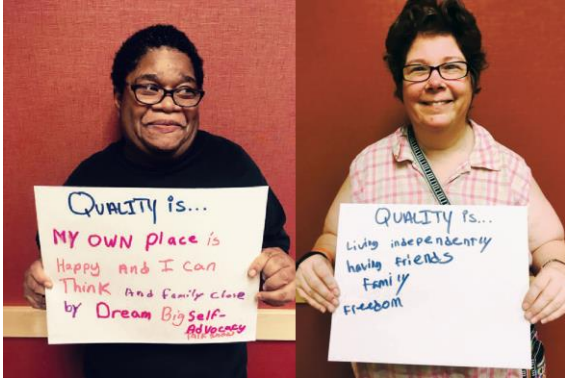 QUALITY is...
MY OWN Place is
Happy And I can
Think And family close
by Dream Big self-
Advocacy
QUALITY is...
Living independently
having friends
family
freedom